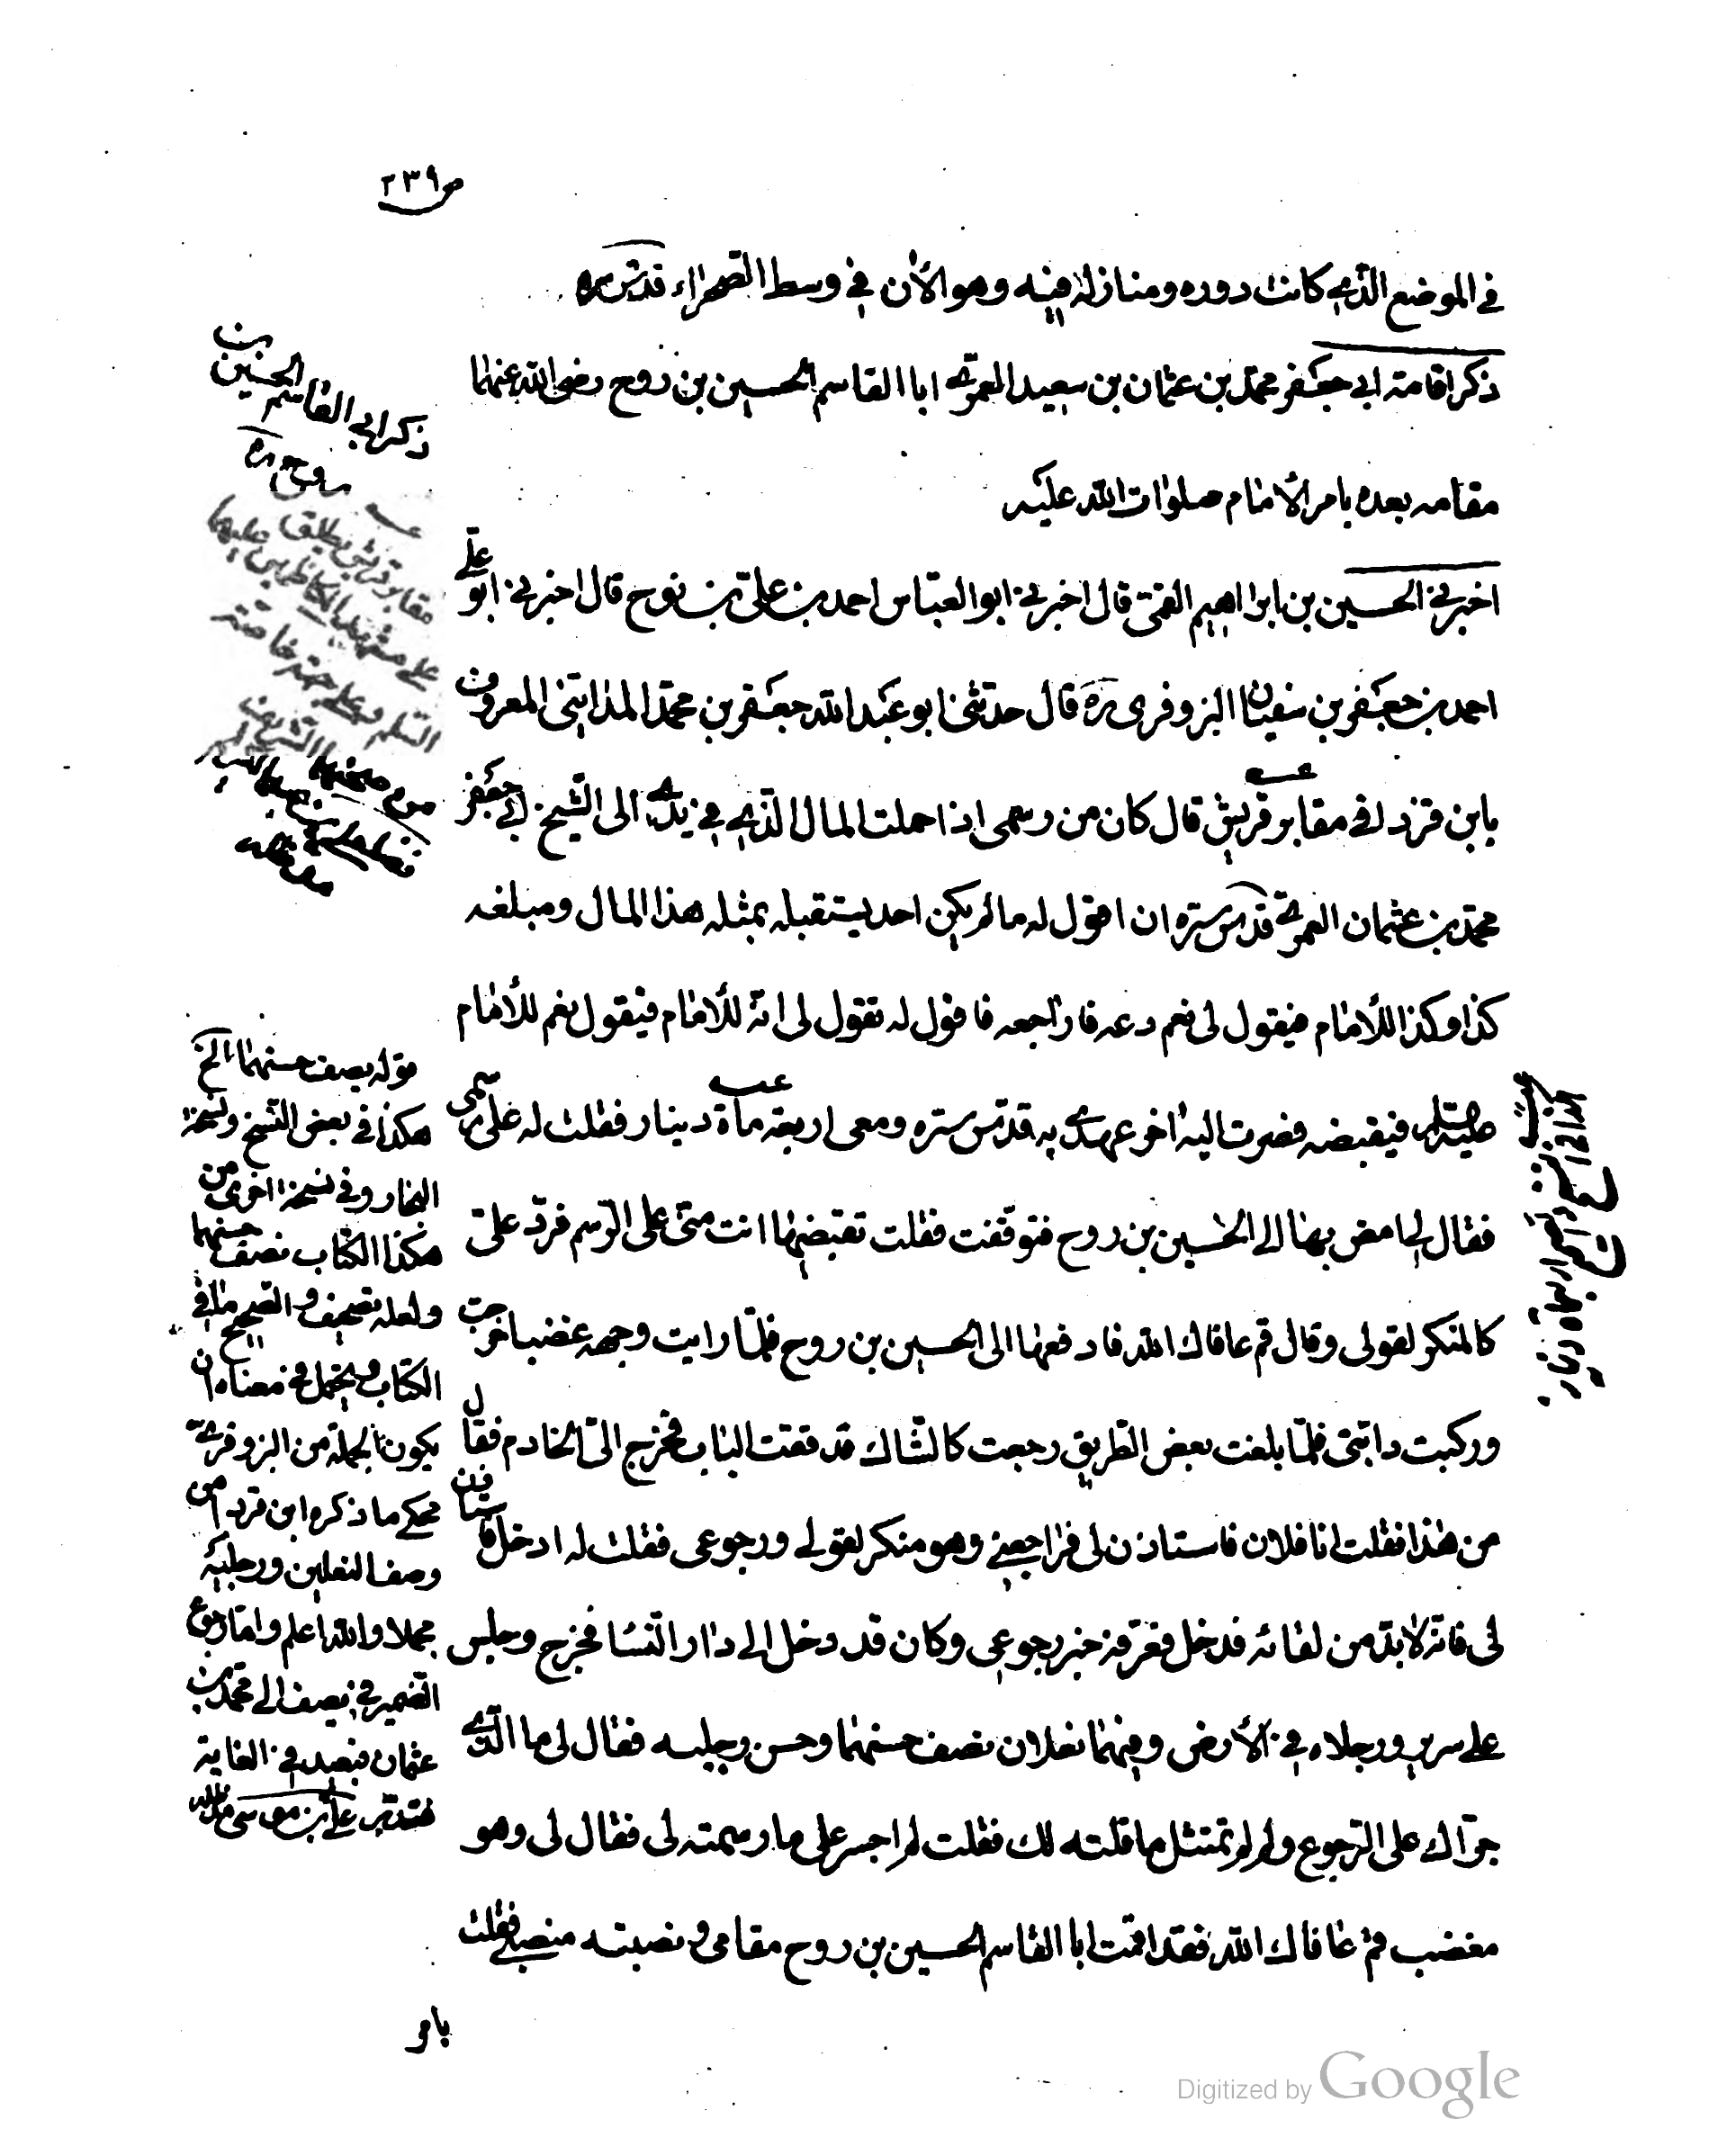 ص ٢٣٩
في الموضع الذي كانت دوره ومنازله فيه وهو الأن في وسط الصحراء قدس سره
ذكر اقامة ابي جعفر محمد بن عثمان بن سعيد العمري ابا القاسم الحسين بن روح رضي الله عنهما
مقامه بعده بامر الأمام صلوات الله عليه
اخبرني الحسين بن ابراهيم القمي قال اخبرني ابو العباس احمد بن علي بن نوح قال اخبرني ابو علي
احمد بن جعفر بن سفيان البزوفري ره قال حدثني ابو عبد الله جعفر بن محمد المدائني المعروف
بابن قزدا في مقابر قريش قال كان من رسمي اذا حملت المال الذي في يدي الى الشيخ ابي جعفر
محمد بن عثمان العمري قدس سره ان اقول له ما لم يكن احد يستقبله بمثله هذا المال ومبلغه
كذا وكذا للأمام فيقول لي نعم دعه فاراجعه فاقول له تقول لي انه للأمام فيقول نعم للأمام
عليه السلم فيقبضه فصرت اليه اخر عهدي به قدس سره ومعي اربعة مأة دينار فقلت له على رسمي
فقال لي امض بها الى الحسين بن روح فتوقفت فقلت تقبضها انت مني على الرسم فرد علي
كالمنكر لقولي وقال قم عافاك الله فادفعها الى الحسين بن روح فلما رايت وجهه غضبا خرجت
وركبت دابتي فلما بلغت بعض الطريق رجعت كالشاك فدققت الباب فخرج الي الخادم فقال
من هذا فقلت انا فلان فاستاذن لي فراجعني وهو منكر لقولي ورجوعي فقلت له ادخل فاستاذن
لي فانه لا بد من لقائه فدخل فعرفه خبر رجوعي وكان قد دخل الى دار النسا فخرج وجلس
على سرير ورجلاه في الأرض وفيهما نعلان نصف حسنهما وحسن رجليه فقال لي ما الذي
جراك على الرجوع ولم لم تمتثل ما قلته لك فقلت لم اجسر على ما رسمته لي فقال لي وهو
مغضب قم عافاك الله فقد اقمت ابا القاسم الحسين بن روح مقامي ونصبته منصبي فقلت
بامر
ذكر ابي القاسم الحسين بن
روح ره
مقابر قريش يطلق
على مشهد الكاظمين عليهما
السلم وعلى جهة خاصة
قوله يصف حسنهما الخ
هكذا في بعض النسخ ونسخة
البحار وفي نسخة اخرى من
هكذا الكتاب نصف حسنهما
ولعله تصحيف والصحيح ما في
الكتاب ويحتمل في معناه ان
يكون الجملة من البزوفري
محكي ما ذكره ابن قزدا من
وصف النعلين ورجليه
مجملا والله اعلم واما رجوع
الضمير في يصف الى محمد بن
عثمان فبعيد في الغاية
فتدبر علي بن موسى